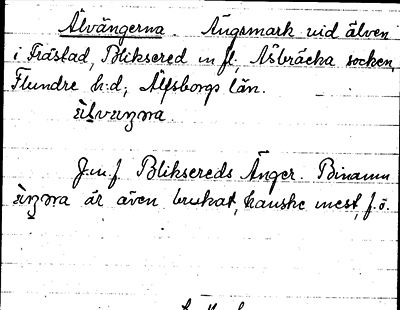 Älvängerna. Ängsmark vid älven
i Frästad, Bliksered m fl, Åsbräcka socken,
Flundre h:d, Älfsborgs län.
J.m.f Bliksereds Änger. Binamn
är även brukat, kanske mest, f.ö.